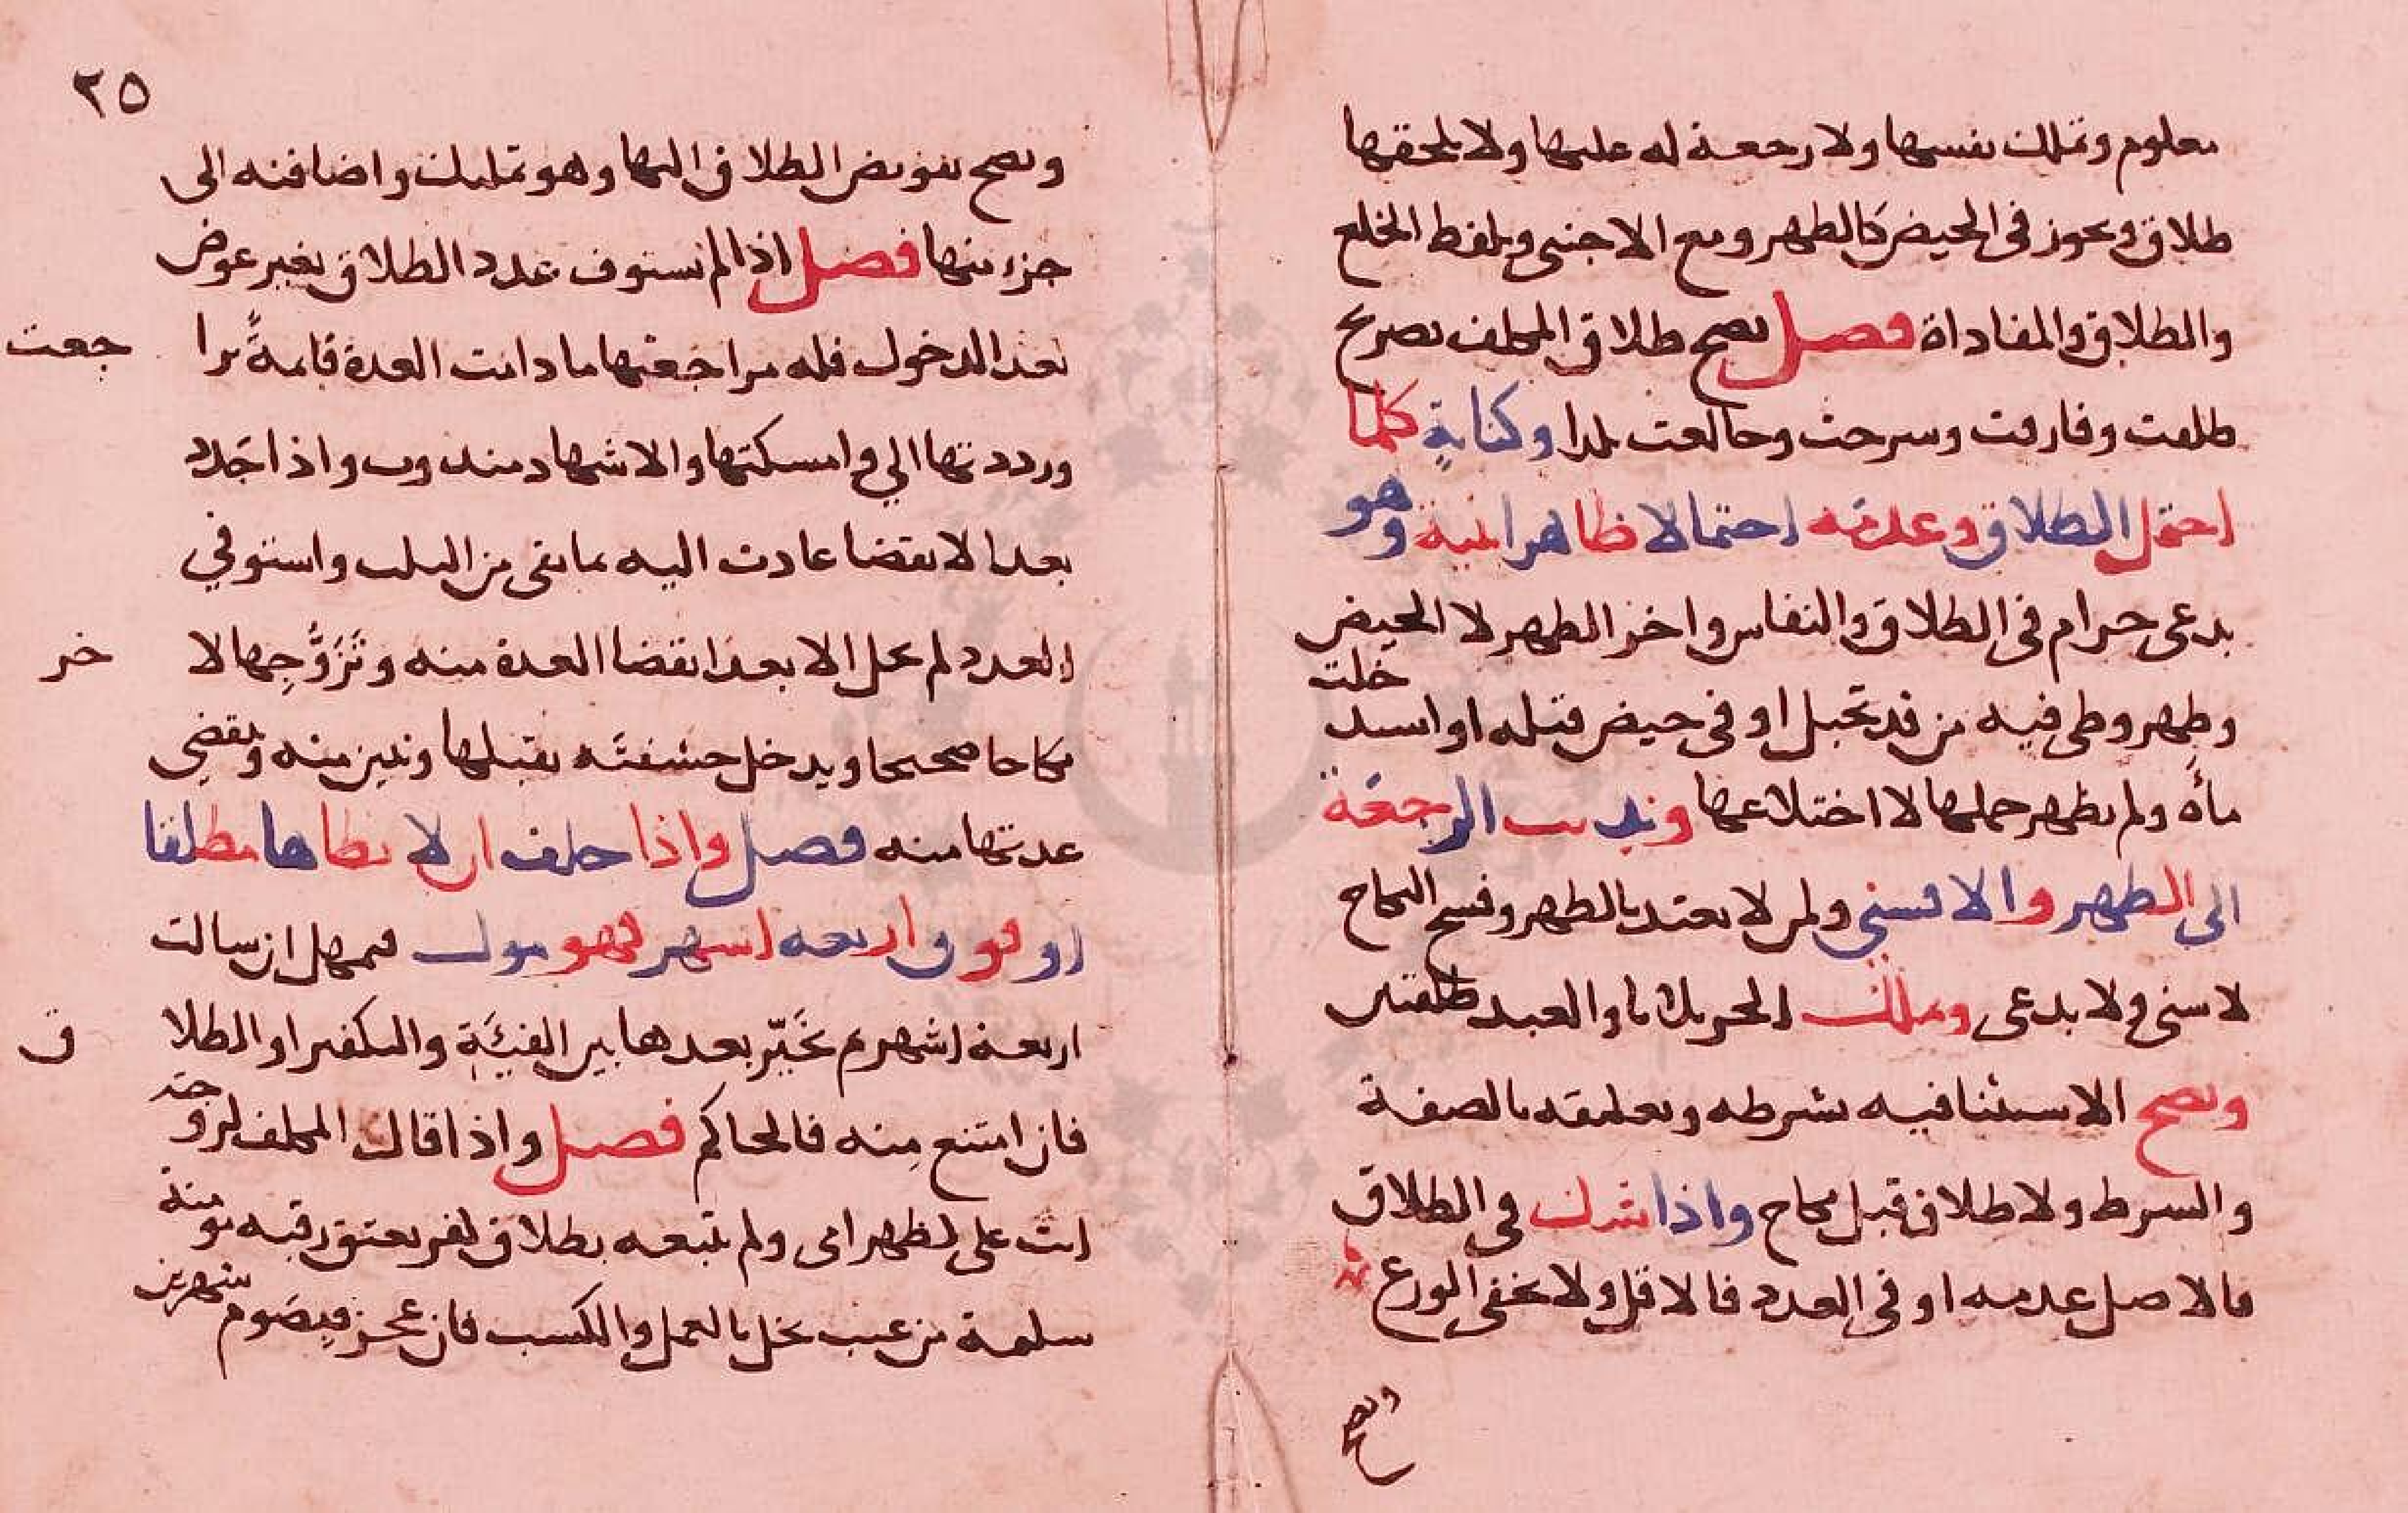 معلوم وتملك نفسها ولا رجعة له عليها ولا يلحقها
طلاق ويجوز في الحيض كالطهر ومع الاجنبي وبلفظ الخلع
والطلاق والمفاداة فصل يصح طلاق المكلف بصريح
طلقت وفارقت وسرحت وخالعت بلدا وكنايةٍ كلما
احتمل الطلاق وعدمه احتمالا ظاهرا بنية وهو
بدعي حرام في الطلاق والنفاس واخر الطهر لا الحيض
وطهر وطى فيه من قد تحبل او في حيض قبله او استدخلت
مأه ولم يظهر حملها لا اختلاعها وندبت الرجعة
الى الطهر والا فسني ولمن لا يعتد بالطهر وفسخ النكاح
لا سني ولا بدعي وملك الحر ثلاثا والعبد طلقتين
ويصح الاستثنا فيه بشرطه وتعليقه بالصفة
والشرط ولا طلاق قبل نكاح واذا شك في الطلاق
فالاصل عدمه او في العدد فالاقل ولا يخفى الورع
ويصح
٢٥
ويصح تفويض الطلاق اليها وهو تمليك واضافته الى
جزء منها فصل اذا لم تستوف عدد الطلاق بغير عوض
بعد الدخول فله مراجعتها ما دامت العدة قايمةً براجعت
ورددتها الي وامسكتها والاشهاد مندوب واذا جَدد
بعد الانقضا عادت اليه بما بقى من الثلث واستوفي
العدد لم تحل الا بعد انقضا العدة منه وتَزَوُّجِها لاخر
نكاحا صحيحا ويدخل حشفتَه بقبلها وتبين منه وتقضي
عدتها منه فصل واذا حلف ان لا يطاها مطلقا
او فوق اربعه اشهر فهو مول فيمهل ان سالت
اربعة اشهر ثم يخَيّر بعدها بين الفيئَةِ والتكفير او الطلاق
فان امتنع مِنه فالحاكم فصل واذا قال المكلف لزوجته
انت على كظهر امى ولم يتبعه بطلاق كفر بعتق رقبه مومنة
سليمة من عيب يخل بالعمل والكسب فان عجز فيصَوم شهرين